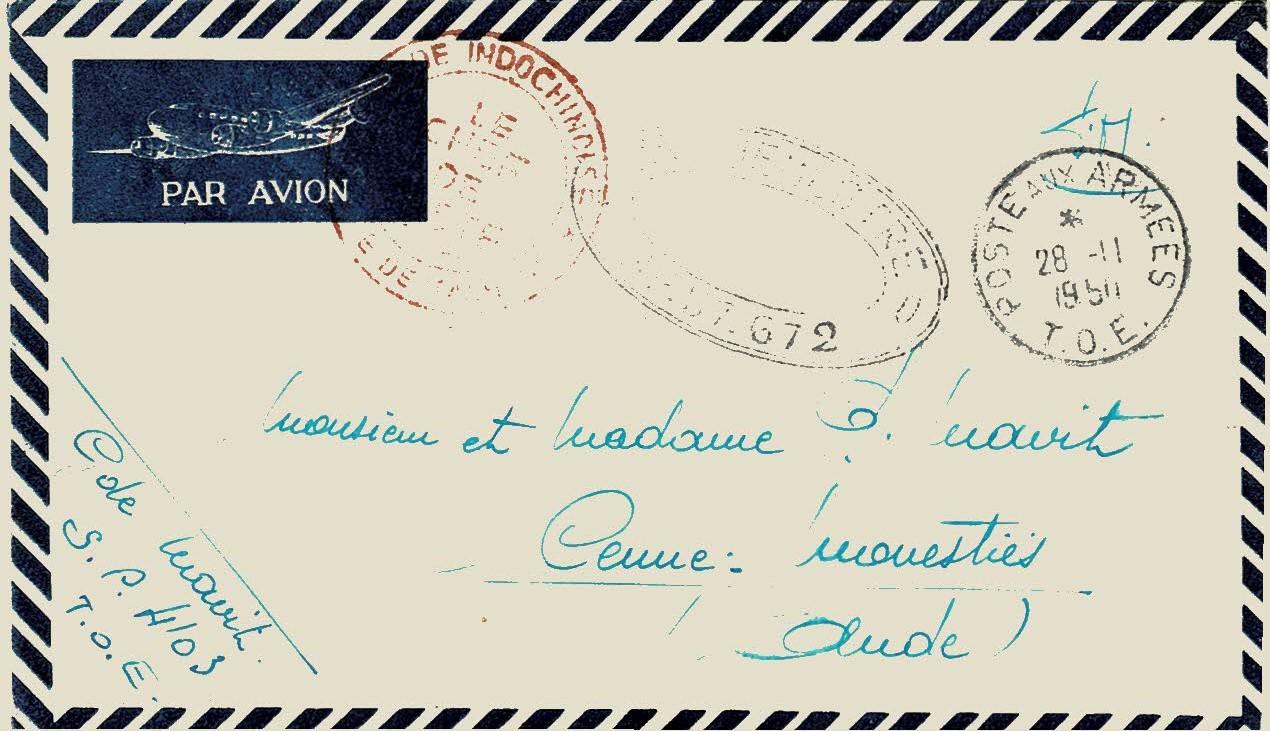 PAR AVION
DE INDOCHINOISE
E DE
672
F.M.
POSTE AUX ARMEES
*
28 -11
1950
T.O.E.
Monsieur et Madame P. Mavit
Cenne - Monestiés
(Aude)
Gde Mavit.
S. P. 4103
T.O.E.